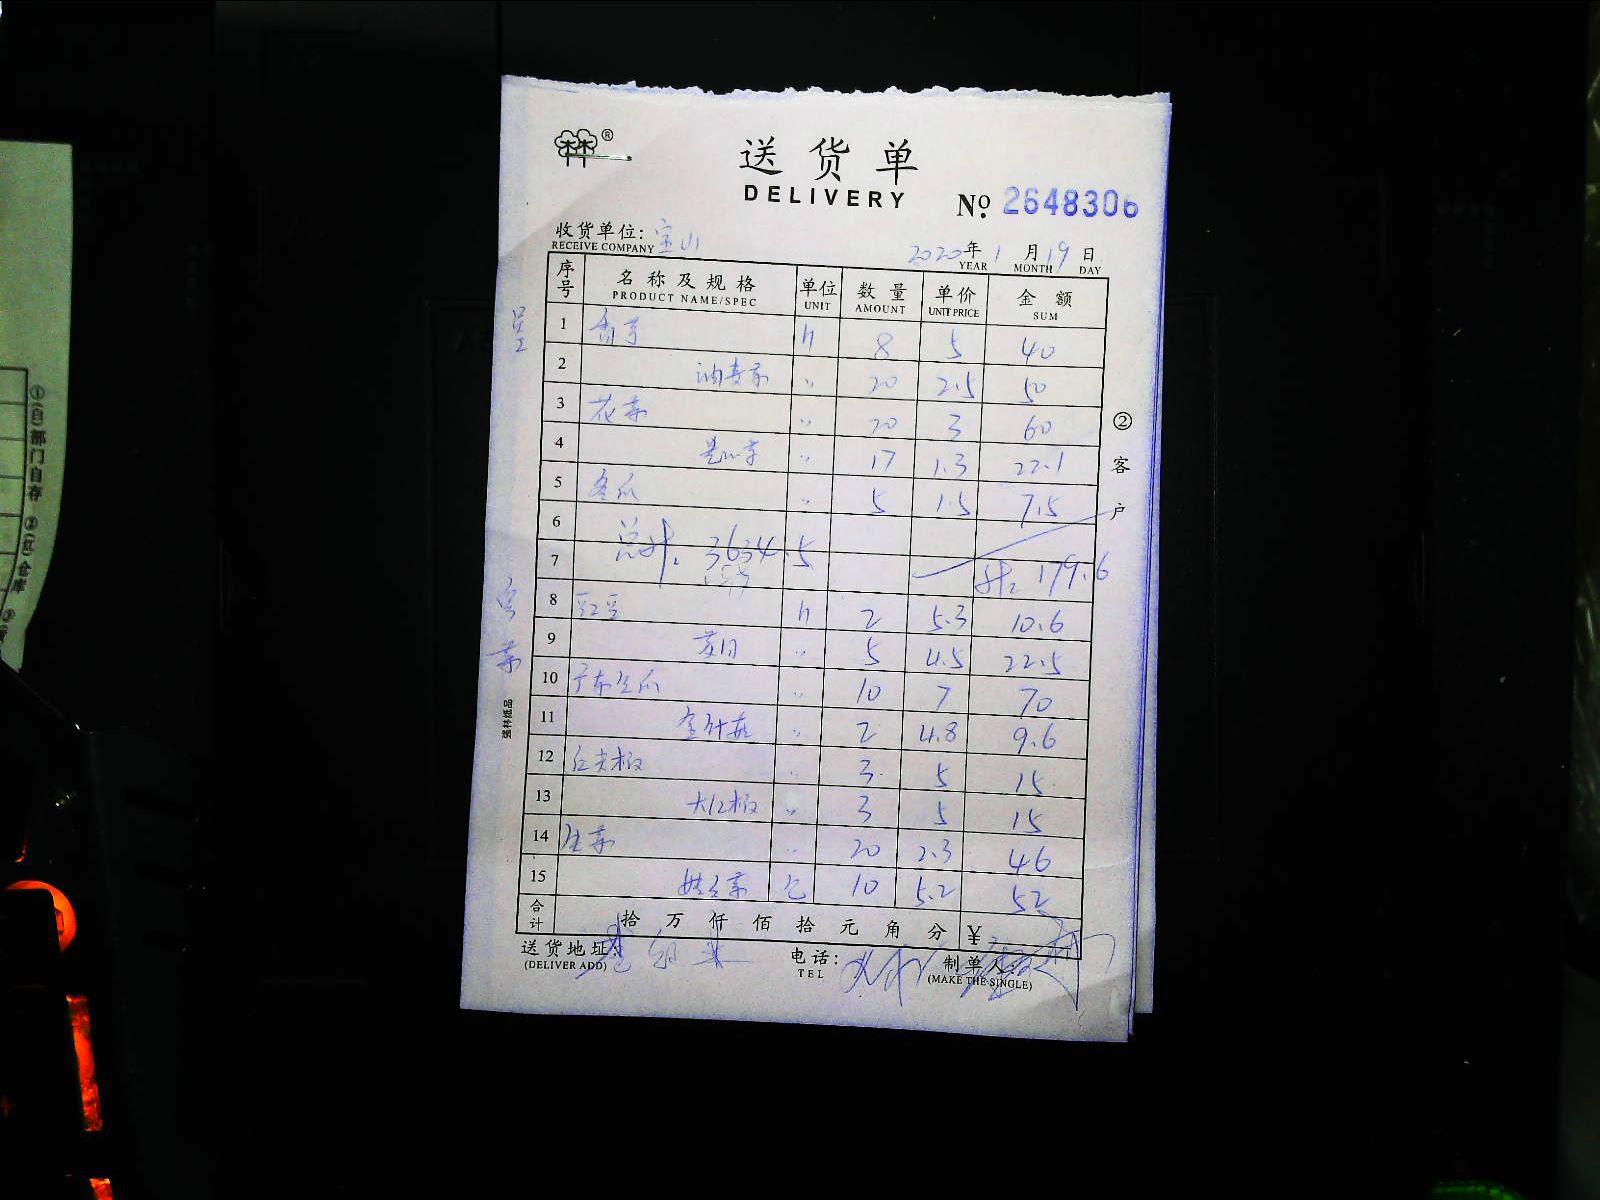 送货单
DELIVERY
№ 2648306
收货单位: 宝山
RECEIVE COMPANY
2020年 1月 19日
YEAR MONTH DAY
序号 名称及规格 单位 数量 单价 金额
PRODUCT NAME/SPEC UNIT AMOUNT UNIT PRICE SUM
1 香芋 8 5 40
2 油麦菜 〃 20 2.5 50
3 花菜 〃 20 3 60
4 〃 17 1.3 22.1
5 冬瓜 〃 5 1.5 7.5
6 总计: 3634.5
7 计: 179.6
8 豇豆 2 5.3 10.6
9 〃 5 4.5 22.5
10 〃 10 7 70
11 金针菇 〃 2 4.8 9.6
12 红尖椒 〃 3 5 15
13 大红椒 〃 3 5 15
14 生菜 〃 20 2.3 46
15 娃娃菜 包 10 5.2 52
合计 拾 万 仟 佰 拾 元 角 分 ¥
送货地址:
(DELIVER ADD)
电话:
TEL
制单人:
(MAKE THE SINGLE)
②客户
强林纸品
①(白)部门自存 ②(红)仓库